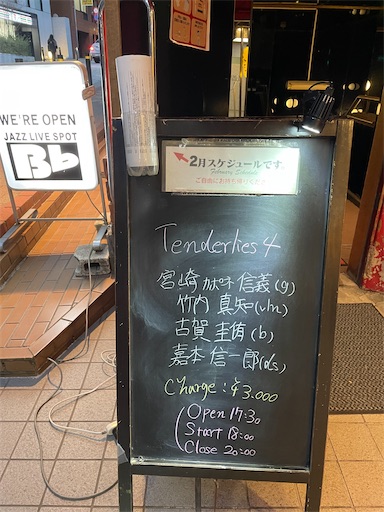 WE'RE OPEN
JAZZ LIVE SPOT
Bb
2月スケジュールです。
February Schedule
ご自由にお持ち帰りください
Tenderlies 4
宮崎 カポネ 信義(g)
竹内 真知(vln)
古賀 圭侑(b)
嘉本 信一郎(ds)
Charge : ¥3.000
Open 17:30
Start 18:00
Close 20:00